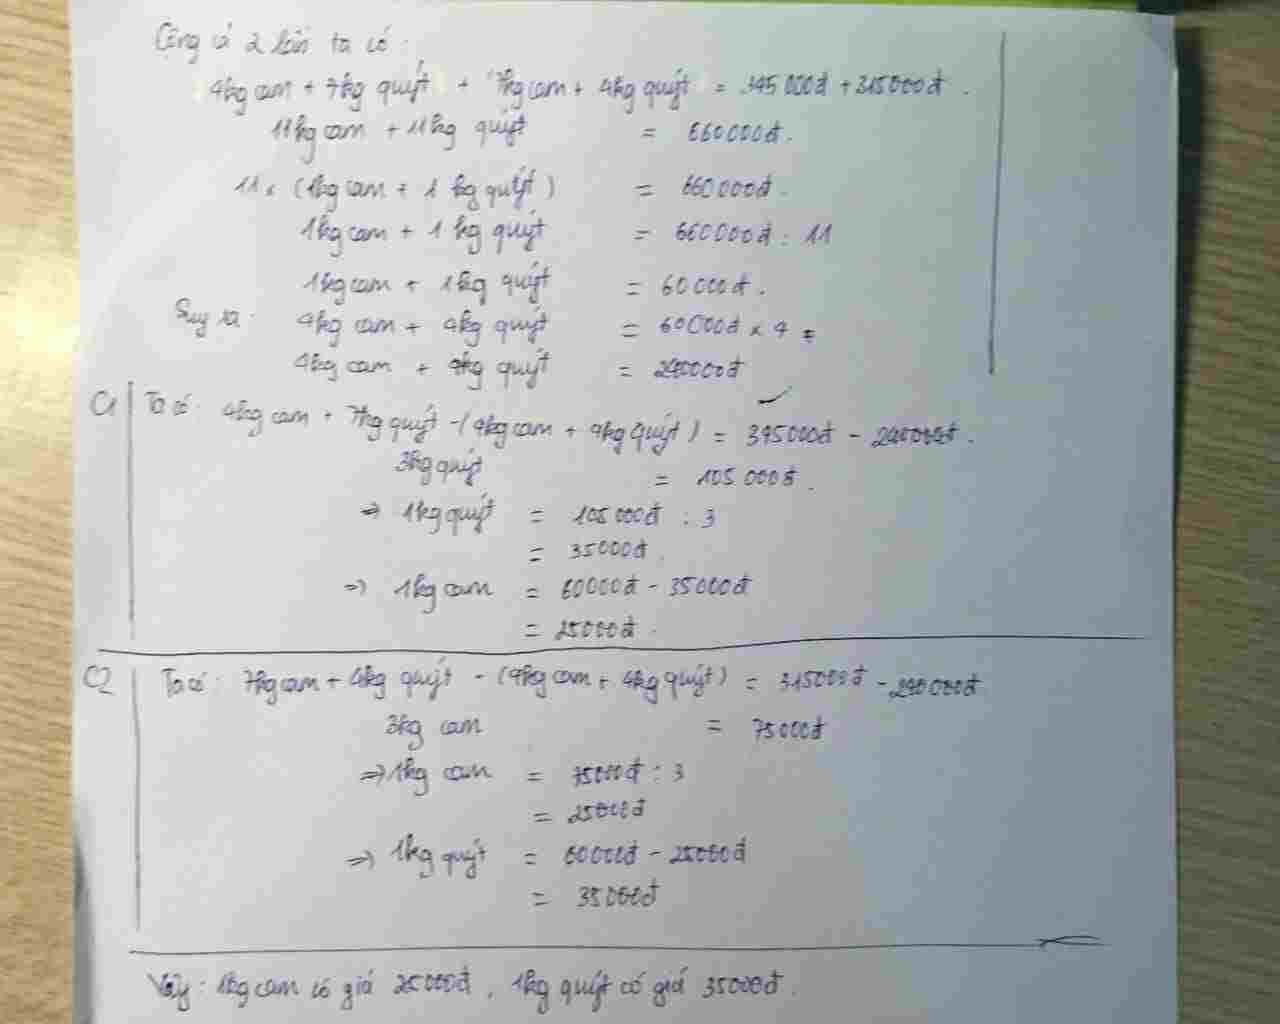 Cộng cả 2 lần ta có:
4kg cam + 7kg quýt + 7kg cam + 4kg quýt = 345 000đ + 315000đ.
11kg cam + 11kg quýt = 660000đ.
11 x (1kg cam + 1 kg quýt) = 660000đ.
1kg cam + 1 kg quýt = 660000đ : 11
1kg cam + 1kg quýt = 60000đ.
Suy ra: 4kg cam + 4kg quýt = 60000đ x 4
4kg cam + 4kg quýt = 240000đ
C1 Ta có: 4kg cam + 7kg quýt - (4kg cam + 4kg quýt) = 345000đ - 240000đ.
3kg quýt = 105 000đ.
=> 1kg quýt = 105 000đ : 3
= 35000đ.
=> 1kg cam = 60000đ - 35000đ
= 25000đ.
C2 Ta có: 7kg cam + 4kg quýt - (4kg cam + 4kg quýt) = 315000đ - 240000đ
3kg cam = 75000đ
=> 1kg cam = 75000đ : 3
= 25000đ
=> 1kg quýt = 60000đ - 25000đ
= 35000đ
Vậy: 1kg cam có giá 25000đ, 1kg quýt có giá 35000đ.